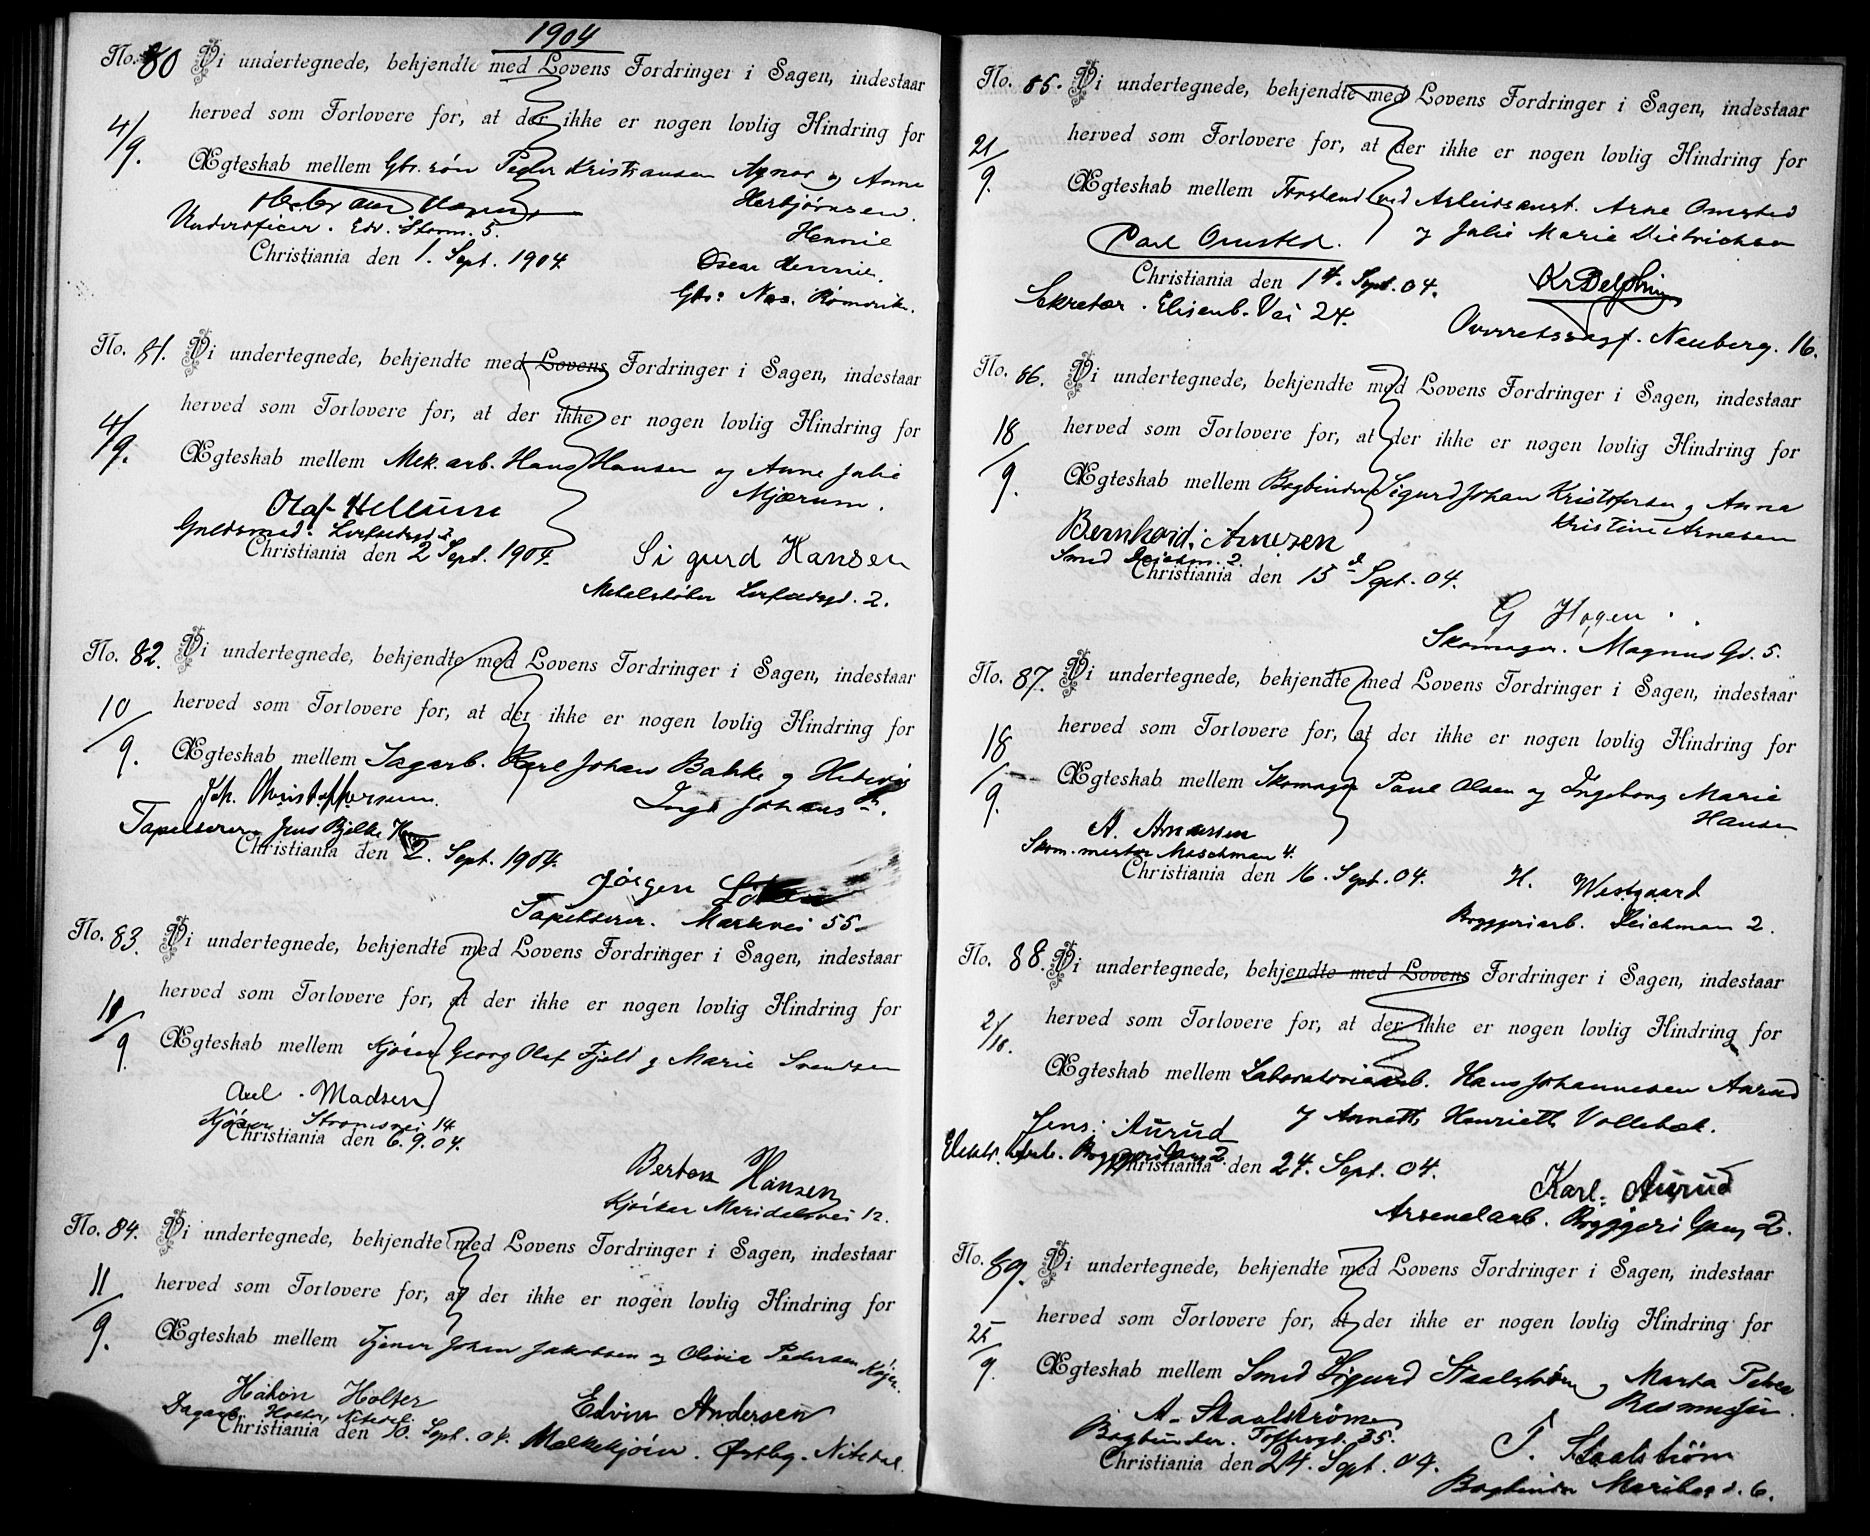 1904
No. 80 Vi undertegnede, bekjendte med Lovens Fordringer i Sagen, indestaar
4/9. herved som Forlovere for, at der ikke er nogen lovlig Hindring for
Ægteskab mellem Gbr. søn Peder Kristiansen og Anne
Herbjørnsen.
Underofficer. Edv. Storm. 5. Hennie
Christiania den 1. Sept. 1904. Oscar Hennie.
Gbr: Nes. Romerike.
No. 81. Vi undertegnede, bekjendte med Lovens Fordringer i Sagen, indestaar
4/9. herved som Forlovere for, at der ikke er nogen lovlig Hindring for
Ægteskab mellem Mek. arb. Hans Hansen og Anne Julie
Mjærum.
Olaf Hellum
Guldsmed.
Christiania den 2 Sept. 1904. Sigurd Hansen
Metalstøber 2.
No. 82. Vi undertegnede, bekjendte med Lovens Fordringer i Sagen, indestaar
10/9. herved som Forlovere for, at der ikke er nogen lovlig Hindring for
Ægteskab mellem Sagarb. Karl Johan Bakke og Hedevig
Joh. Christophersen. Inga Johans
Tapetserer Jens Bjelke
Christiania den 2. Sept. 1904.
Jörgen
Tapetserer. Markvei 55
No. 83. Vi undertegnede, bekjendte med Lovens Fordringer i Sagen, indestaar
herved som Forlovere for, at der ikke er nogen lovlig Hindring for
Ægteskab mellem Kjører Georg Olaf Fjeld og Marie Svendsen
Axel Madsen
Kjører Strømsvei 14
Christiania den 6.9.04.
Hansen
Kjørker Maridalsvei 12.
No. 84. Vi undertegnede, bekjendte med Lovens Fordringer i Sagen, indestaar
11/9. herved som Forlovere for, at der ikke er nogen lovlig Hindring for
Ægteskab mellem Tjener Johan Jakobsen og Olivia Pedersen
Håkon Holter Edvin Andersen
Dagarb. Holter, Nitedal.
Christiania den 10. Sept. 04. Melkekjører. Østby. Nitedal.
No. 85. Vi undertegnede, bekjendte med Lovens Fordringer i Sagen, indestaar
21/9. herved som Forlovere for, at der ikke er nogen lovlig Hindring for
Ægteskab mellem Forstand. ved Arbeidsanst. Arne Omsted
Carl Omsted. og Julie Marie Dietrichsen
Christiania den 14. Sept. 04. Kr Delphin
Sekretær. Elisenb. Vei 24. Overretssagf. Neuberg. 16.
No. 86. Vi undertegnede, bekjendte med Lovens Fordringer i Sagen, indestaar
18/9. herved som Forlovere for, at der ikke er nogen lovlig Hindring for
Ægteskab mellem Bogbinder Sigurd Johan Kristofersen og Anna
Kristine Arnesen
Bernhard Arnesen
Smed Deichm. 2.
Christiania den 15 Sept. 04.
G Hagen
Skomager. Magnus Gd. 5.
No. 87. Vi undertegnede, bekjendte med Lovens Fordringer i Sagen, indestaar
18/9. herved som Forlovere for, at der ikke er nogen lovlig Hindring for
Ægteskab mellem Skomager Paul Olsen og Ingeborg Marie
Hansen
A. Arnesen
Skom. mester 4.
Christiania den 16. Sept. 04. H. Westgaard
Bryggeriarb. Deichman 2.
No. 88. Vi undertegnede, bekjendte med Lovens Fordringer i Sagen, indestaar
2/10. herved som Forlovere for, at der ikke er nogen lovlig Hindring for
Ægteskab mellem Laboratoriearb. Hans Johannesen Aurud
og Annette Henriette Vollebæk.
Jens Aurud
Elektr. Arb. Bryggerigang 2
Christiania den 24. Sept. 04. Karl Aurud
Arsenalarb. Bryggeri Gang 2.
No. 89. Vi undertegnede, bekjendte med Lovens Fordringer i Sagen, indestaar
25/9. herved som Forlovere for, at der ikke er nogen lovlig Hindring for
Ægteskab mellem Smed Sigurd Staalstrøm og Marta Petra
Rasmussen.
A. Staalstrøm
Bogbinder. Toftesgd. 35.
Christiania den 24. Sept. 04. T. Staalstrøm
Bogbinder 6.